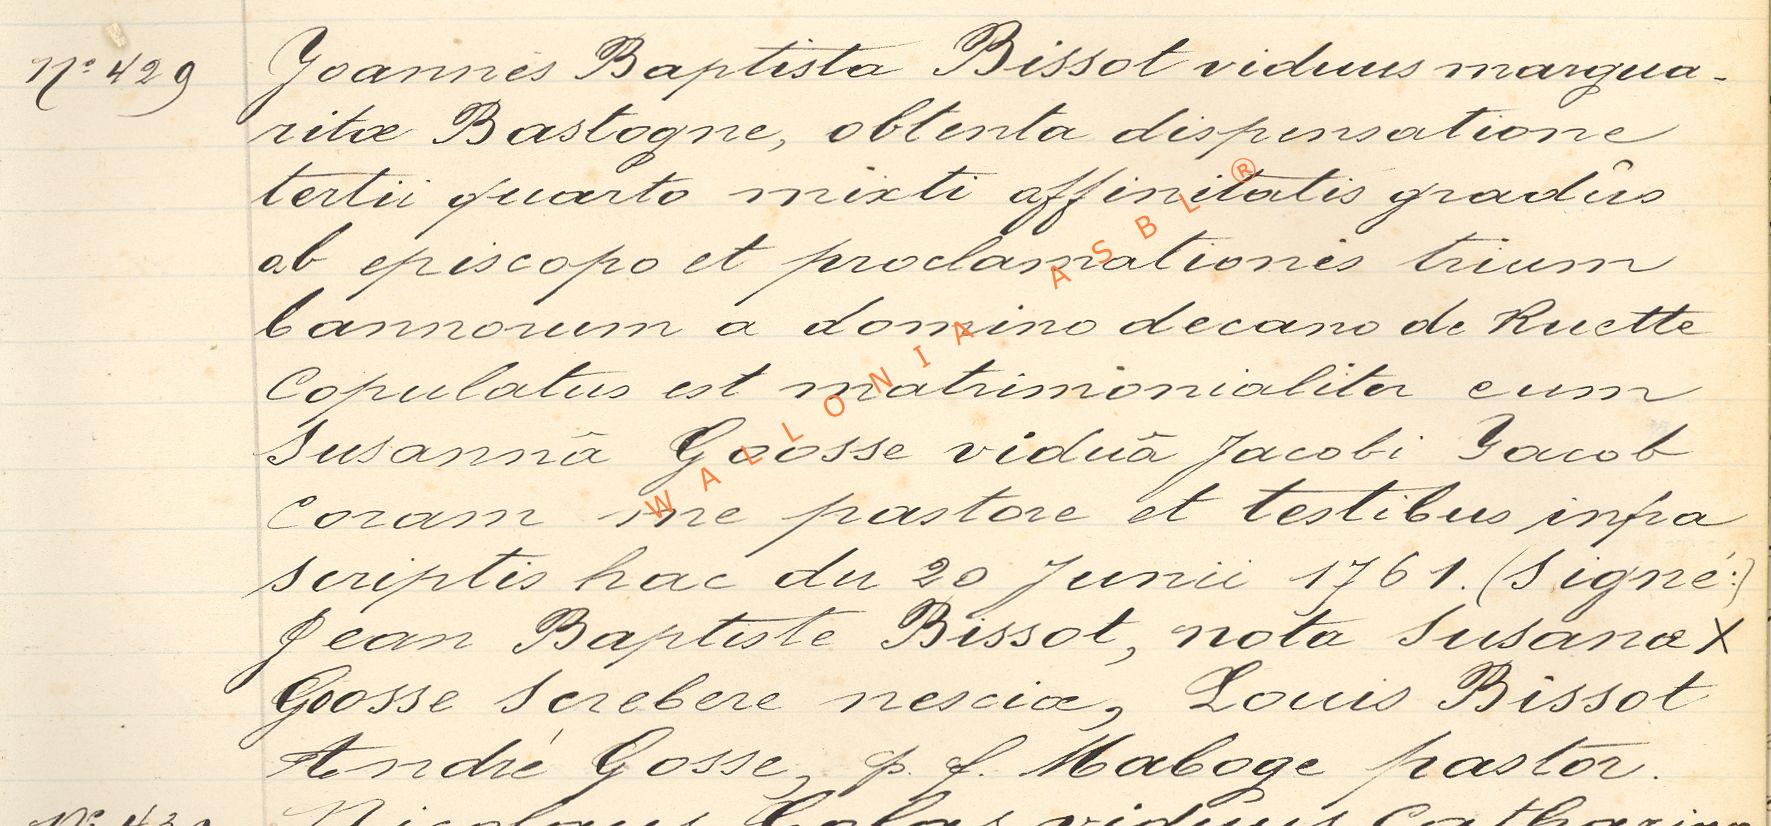 N° 429 Joannes Baptista Bissot viduus margua-
ritæ Bastogne, obtenta dispensatione
tertii quarto mixti affinitatis gradûs
ab episcopo et proclamationis trium
bannorum a domino decano de Ruette
Copulatus est matrimonialiter cum
Susannâ Goosse viduâ Jacobi Jacob
Coram me pastore et testibus infra
scriptis hac du 20 Junii 1761. (Signé:)
Jean Baptiste Bissot, nota Susanæ X
Goosse screbere nesciæ, Louis Bissot
André Gosse, p. f. Maboge pastor.
Nicolaus Colas viduus Catharinæ
WALLONIA ASBL ®